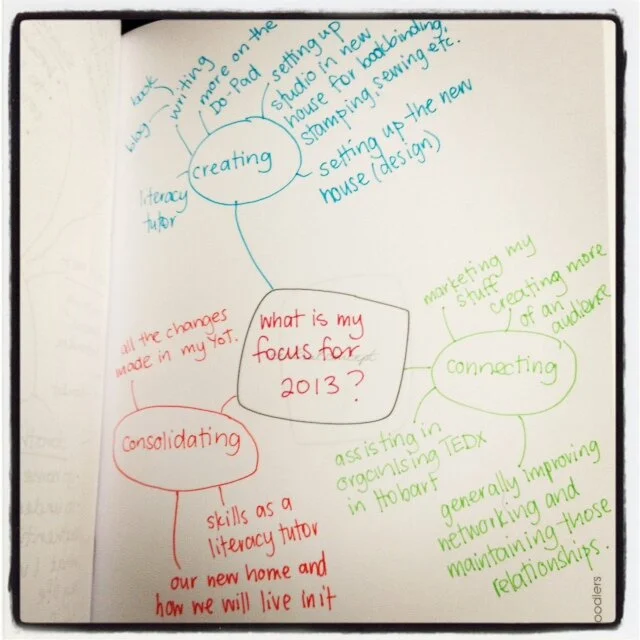 book
blog
writing
more on the
Do-Pad
setting up
studio in new
house for bookbinding,
stamping, sewing etc.
creating
setting up the new
house (design)
literacy
tutor
what is my
focus for
2013?
marketing my
stuff
creating more
of an
audience
connecting
assisting in
organising TEDX
in Hobart
generally improving
networking and
maintaining those
relationships.
all the changes
made in my YOT.
consolidating
skills as a
literacy tutor
our new home and
how we will live in it
oodlers